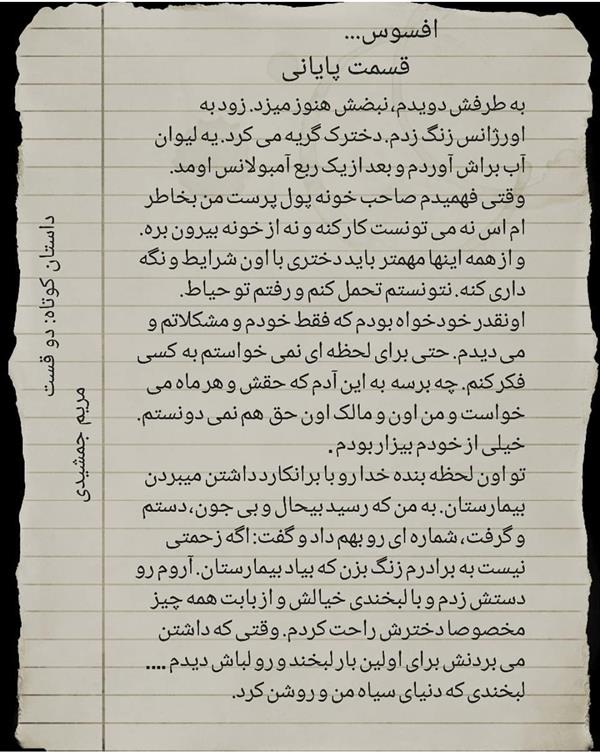 افسوس...
قسمت پایانی
به طرفش دویدم، نبضش هنوز میزد. زود به
اورژانس زنگ زدم. دخترک گریه می کرد. یه لیوان
آب براش آوردم و بعد از یک ربع آمبولانس اومد.
وقتی فهمیدم صاحب خونه پول پرست من بخاطر
ام اس نه می تونست کار کنه و نه از خونه بیرون بره.
و از همه اینها مهمتر باید دختری با اون شرایط و نگه
داری کنه. نتونستم تحمل کنم و رفتم تو حیاط.
اونقدر خودخواه بودم که فقط خودم و مشکلاتم و
می دیدم. حتی برای لحظه ای نمی خواستم به کسی
فکر کنم. چه برسه به این آدم که حقش و هر ماه می
خواست و من اون و مالک اون حق هم نمی دونستم.
خیلی از خودم بیزار بودم.
تو اون لحظه بنده خدا رو با برانکارد داشتن میبردن
بیمارستان. به من که رسید بیحال و بی جون، دستم
و گرفت، شماره ای رو بهم داد و گفت: اگه زحمتی
نیست به برادرم زنگ بزن که بیاد بیمارستان. آروم رو
دستش زدم و با لبخندی خیالش و از بابت همه چیز
مخصوصا دخترش راحت کردم. وقتی که داشتن
می بردنش برای اولین بار لبخند و رو لباش دیدم ....
لبخندی که دنیای سیاه من و روشن کرد.
داستان کوتاه: دو قست
مریم جمشیدی